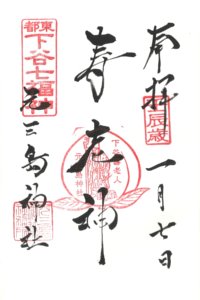 奉拝
辰歳
一月七日
寿老神
東都
下谷七福神
元三島神社